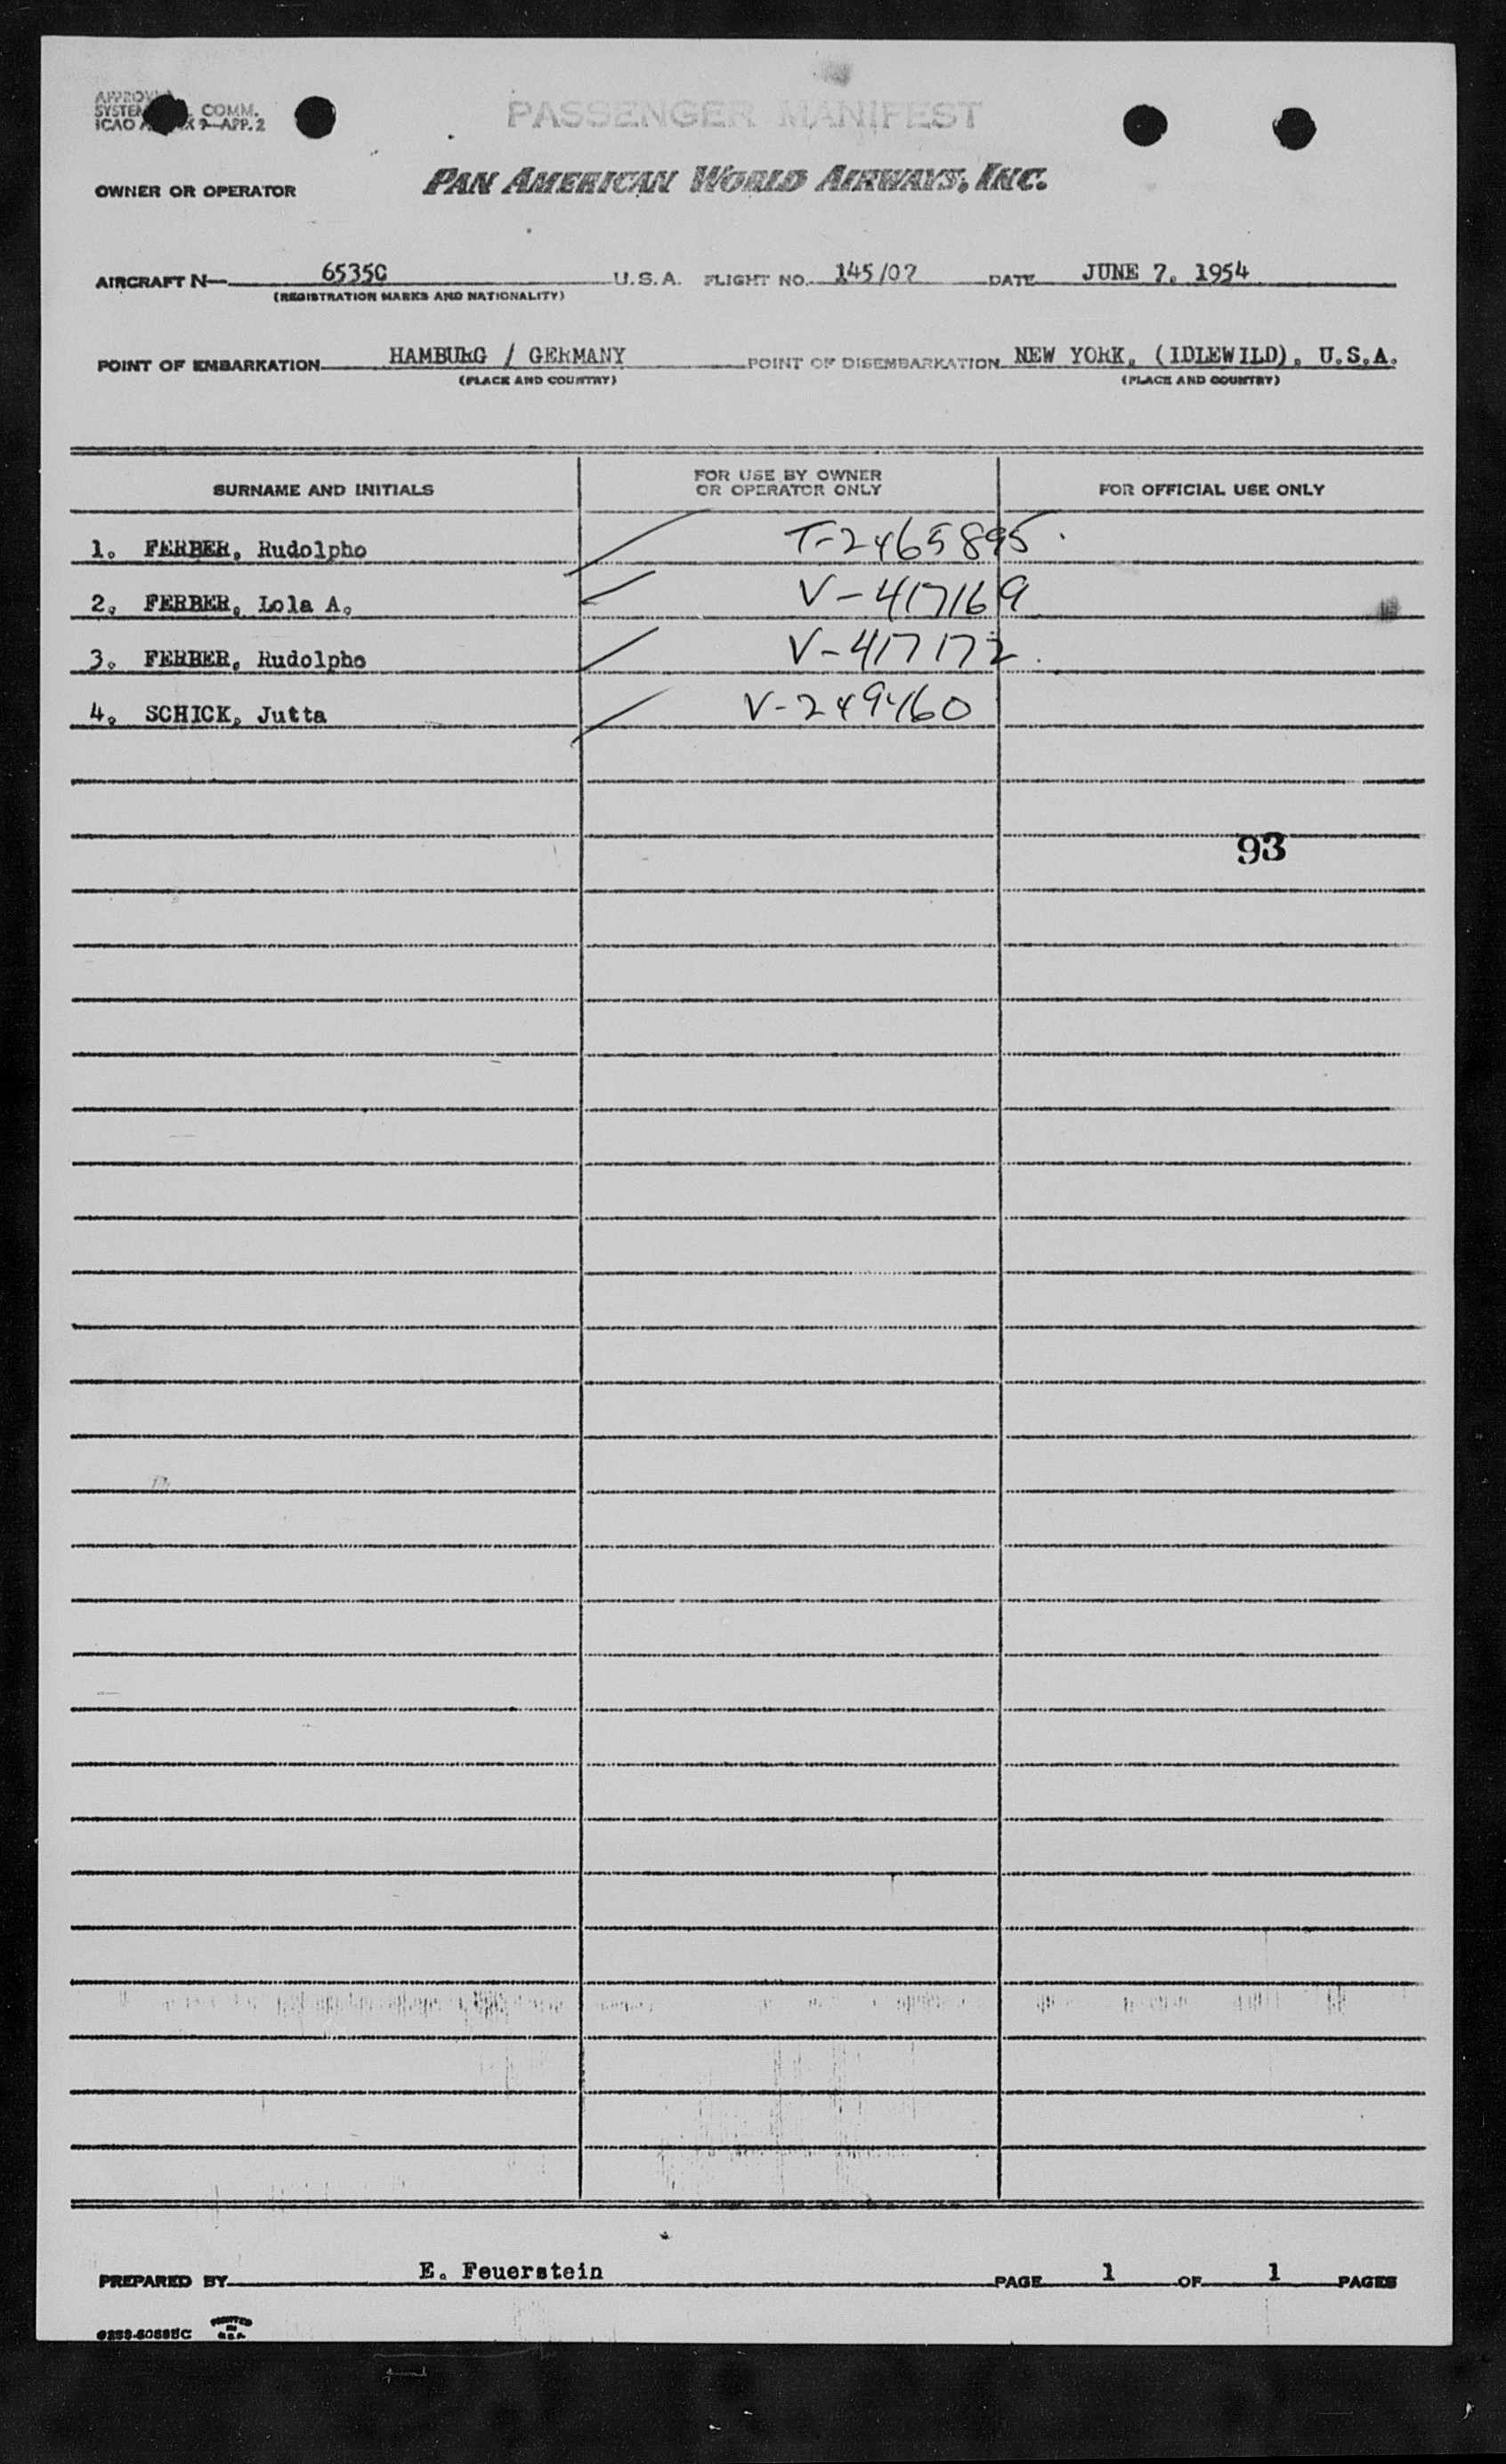 PASSENGER MANIFEST
COMM.
ICAO 9-APP.2
OWNER OR OPERATOR PAN AMERICAN WORLD AIRWAYS, INC.
AIRCRAFT N 6535C U.S.A. FLIGHT NO. 145/07 DATE JUNE 7, 1954
(REGISTRATION MARKS AND NATIONALITY)
POINT OF EMBARKATION HAMBURG / GERMANY POINT OF DISEMBARKATION NEW YORK, (IDLEWILD), U.S.A.
(PLACE AND COUNTRY) (PLACE AND COUNTRY)
SURNAME AND INITIALS FOR USE BY OWNER OR OPERATOR ONLY FOR OFFICIAL USE ONLY
1. FERBER, Rudolpho T-2465895
2. FERBER, Lola A. V-417169
3. FERBER, Rudolpho V-417172
4. SCHICK, Jutta V-249460
93
PREPARED BY E. Feuerstein PAGE 1 OF 1 PAGES
PRINTED IN U.S.A.